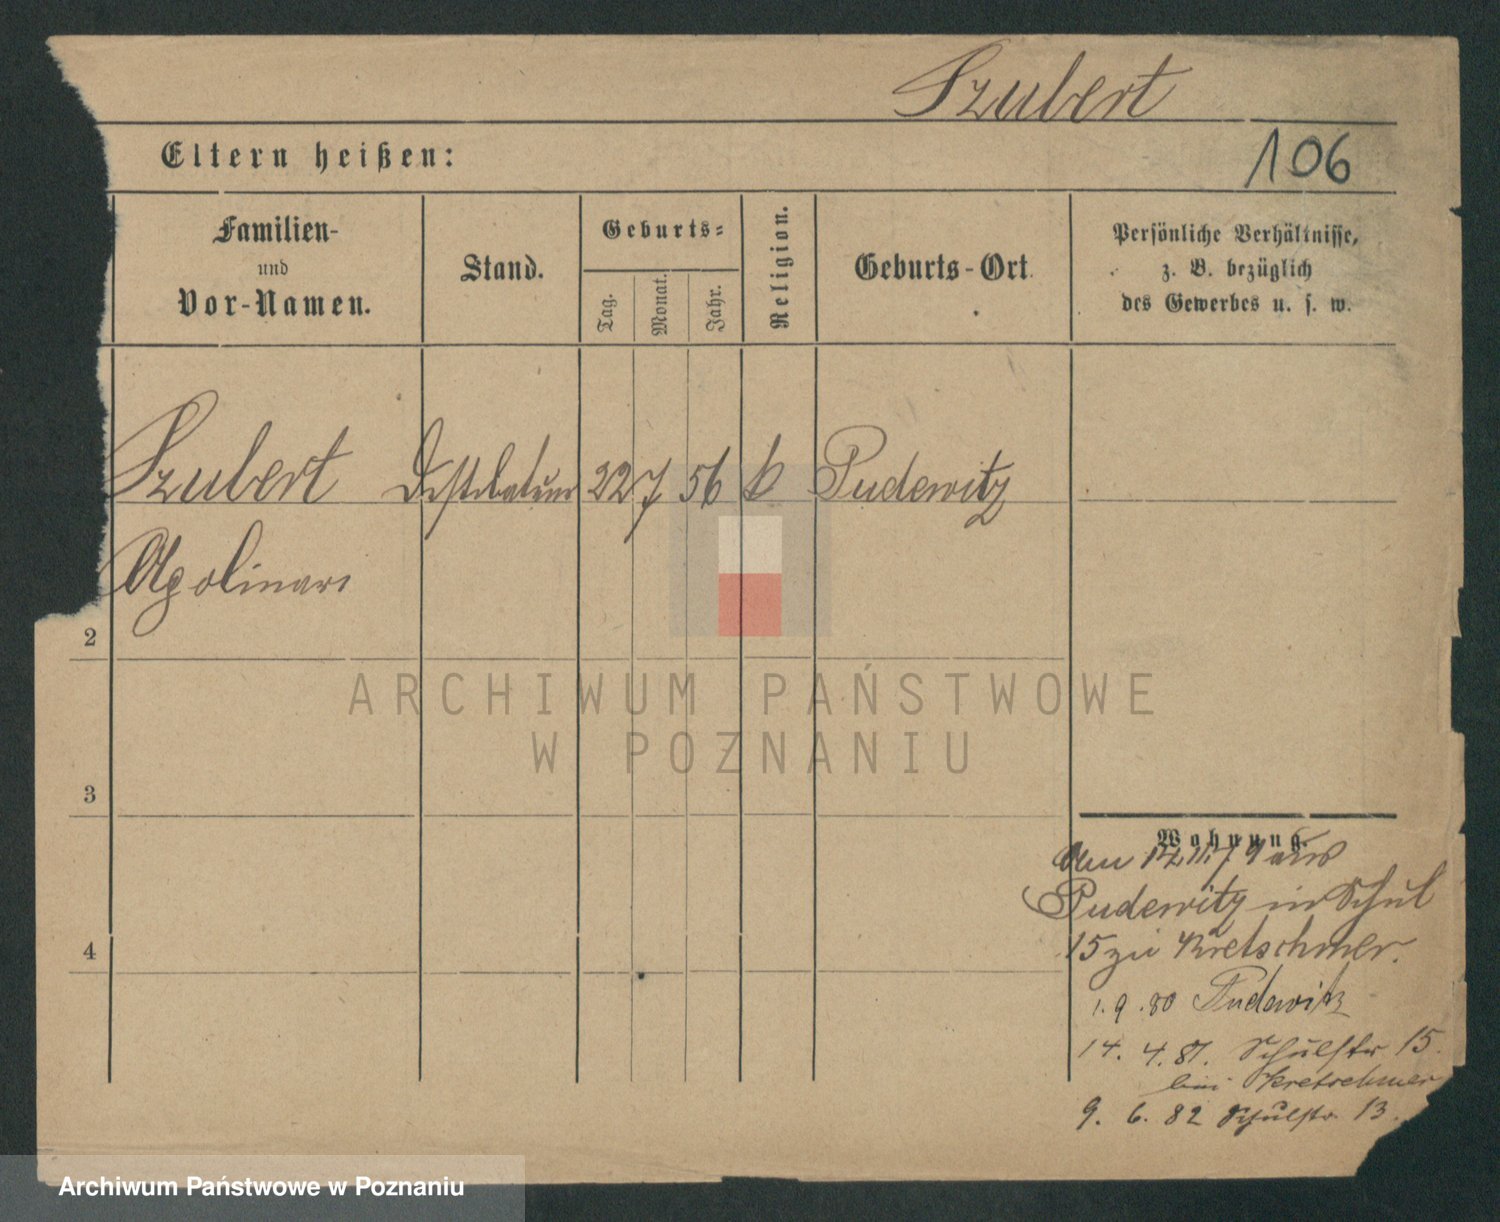 Szubert
106
Eltern heißen:
Familien-
und
Vor-Namen.
Stand.
Geburts-
Tag.
Monat.
Jahr.
Religion.
Geburts-Ort.
Persönliche Verhältnisse,
z. B. bezüglich
des Gewerbes u. s. w.
Szubert 22 7 56 k Pudewitz
Apolinari
2
3
4
ARCHIWUM PAŃSTWOWE
W POZNANIU
Wohnung.
Pudewitz in Schul
15 zu Kretschmer.
1. 9. 80 Pudewitz
14. 4. 81. Schulstr 15.
bei Kretschmer
9. 6. 82 Schulstr. 13.
Archiwum Państwowe w Poznaniu